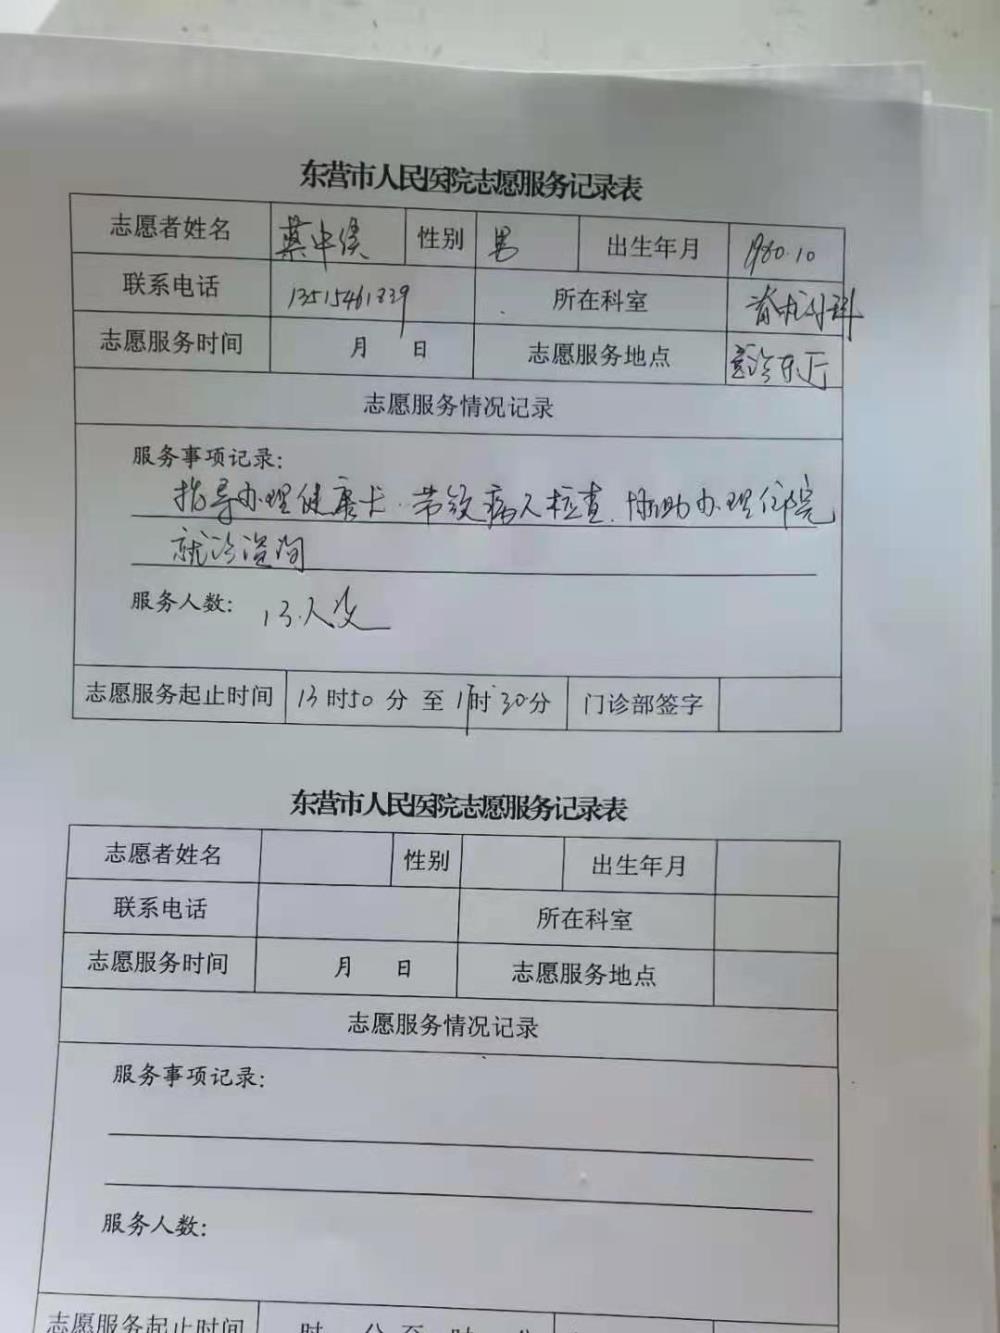 东营市人民医院志愿服务记录表
志愿者姓名 性别 男 出生年月 1980.10
联系电话 13515461339 所在科室 脊柱外科
志愿服务时间 月 日 志愿服务地点
志愿服务情况记录
服务事项记录:
指导办理健康卡.带领病人检查.协助办理住院
就诊咨询
服务人数: 13人次
志愿服务起止时间 13时50分至17时30分 门诊部签字
东营市人民医院志愿服务记录表
志愿者姓名 性别 出生年月
联系电话 所在科室
志愿服务时间 月 日 志愿服务地点
志愿服务情况记录
服务事项记录:
服务人数:
志愿服务起止时间 时 分至 时 分